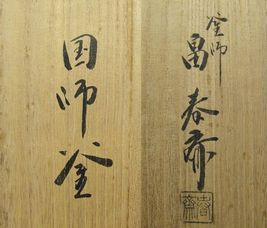 国師釜
釜師
畠春斎